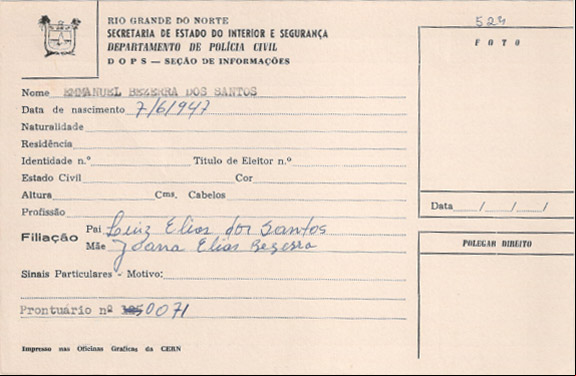 RIO GRANDE DO NORTE
SECRETARIA DE ESTADO DO INTERIOR E SEGURANÇA
DEPARTAMENTO DE POLÍCIA CIVIL
DOPS — SEÇÃO DE INFORMAÇÕES
524
FOTO
Nome EMMANUEL BEZERRA DOS SANTOS
Data de nascimento 7/6/1947
Naturalidade
Residência
Identidade n.º Titulo de Eleitor n.º
Estado Civil Cor
Altura Cms. Cabelos
Profissão
Data / / /
Filiação
Pai Luiz Elias dos Santos
Mãe Joana Elias Bezerra
POLEGAR DIREITO
Sinais Particulares - Motivo:
Prontuário nº 0071
Impresso nas Oficinas Graficas da CERN